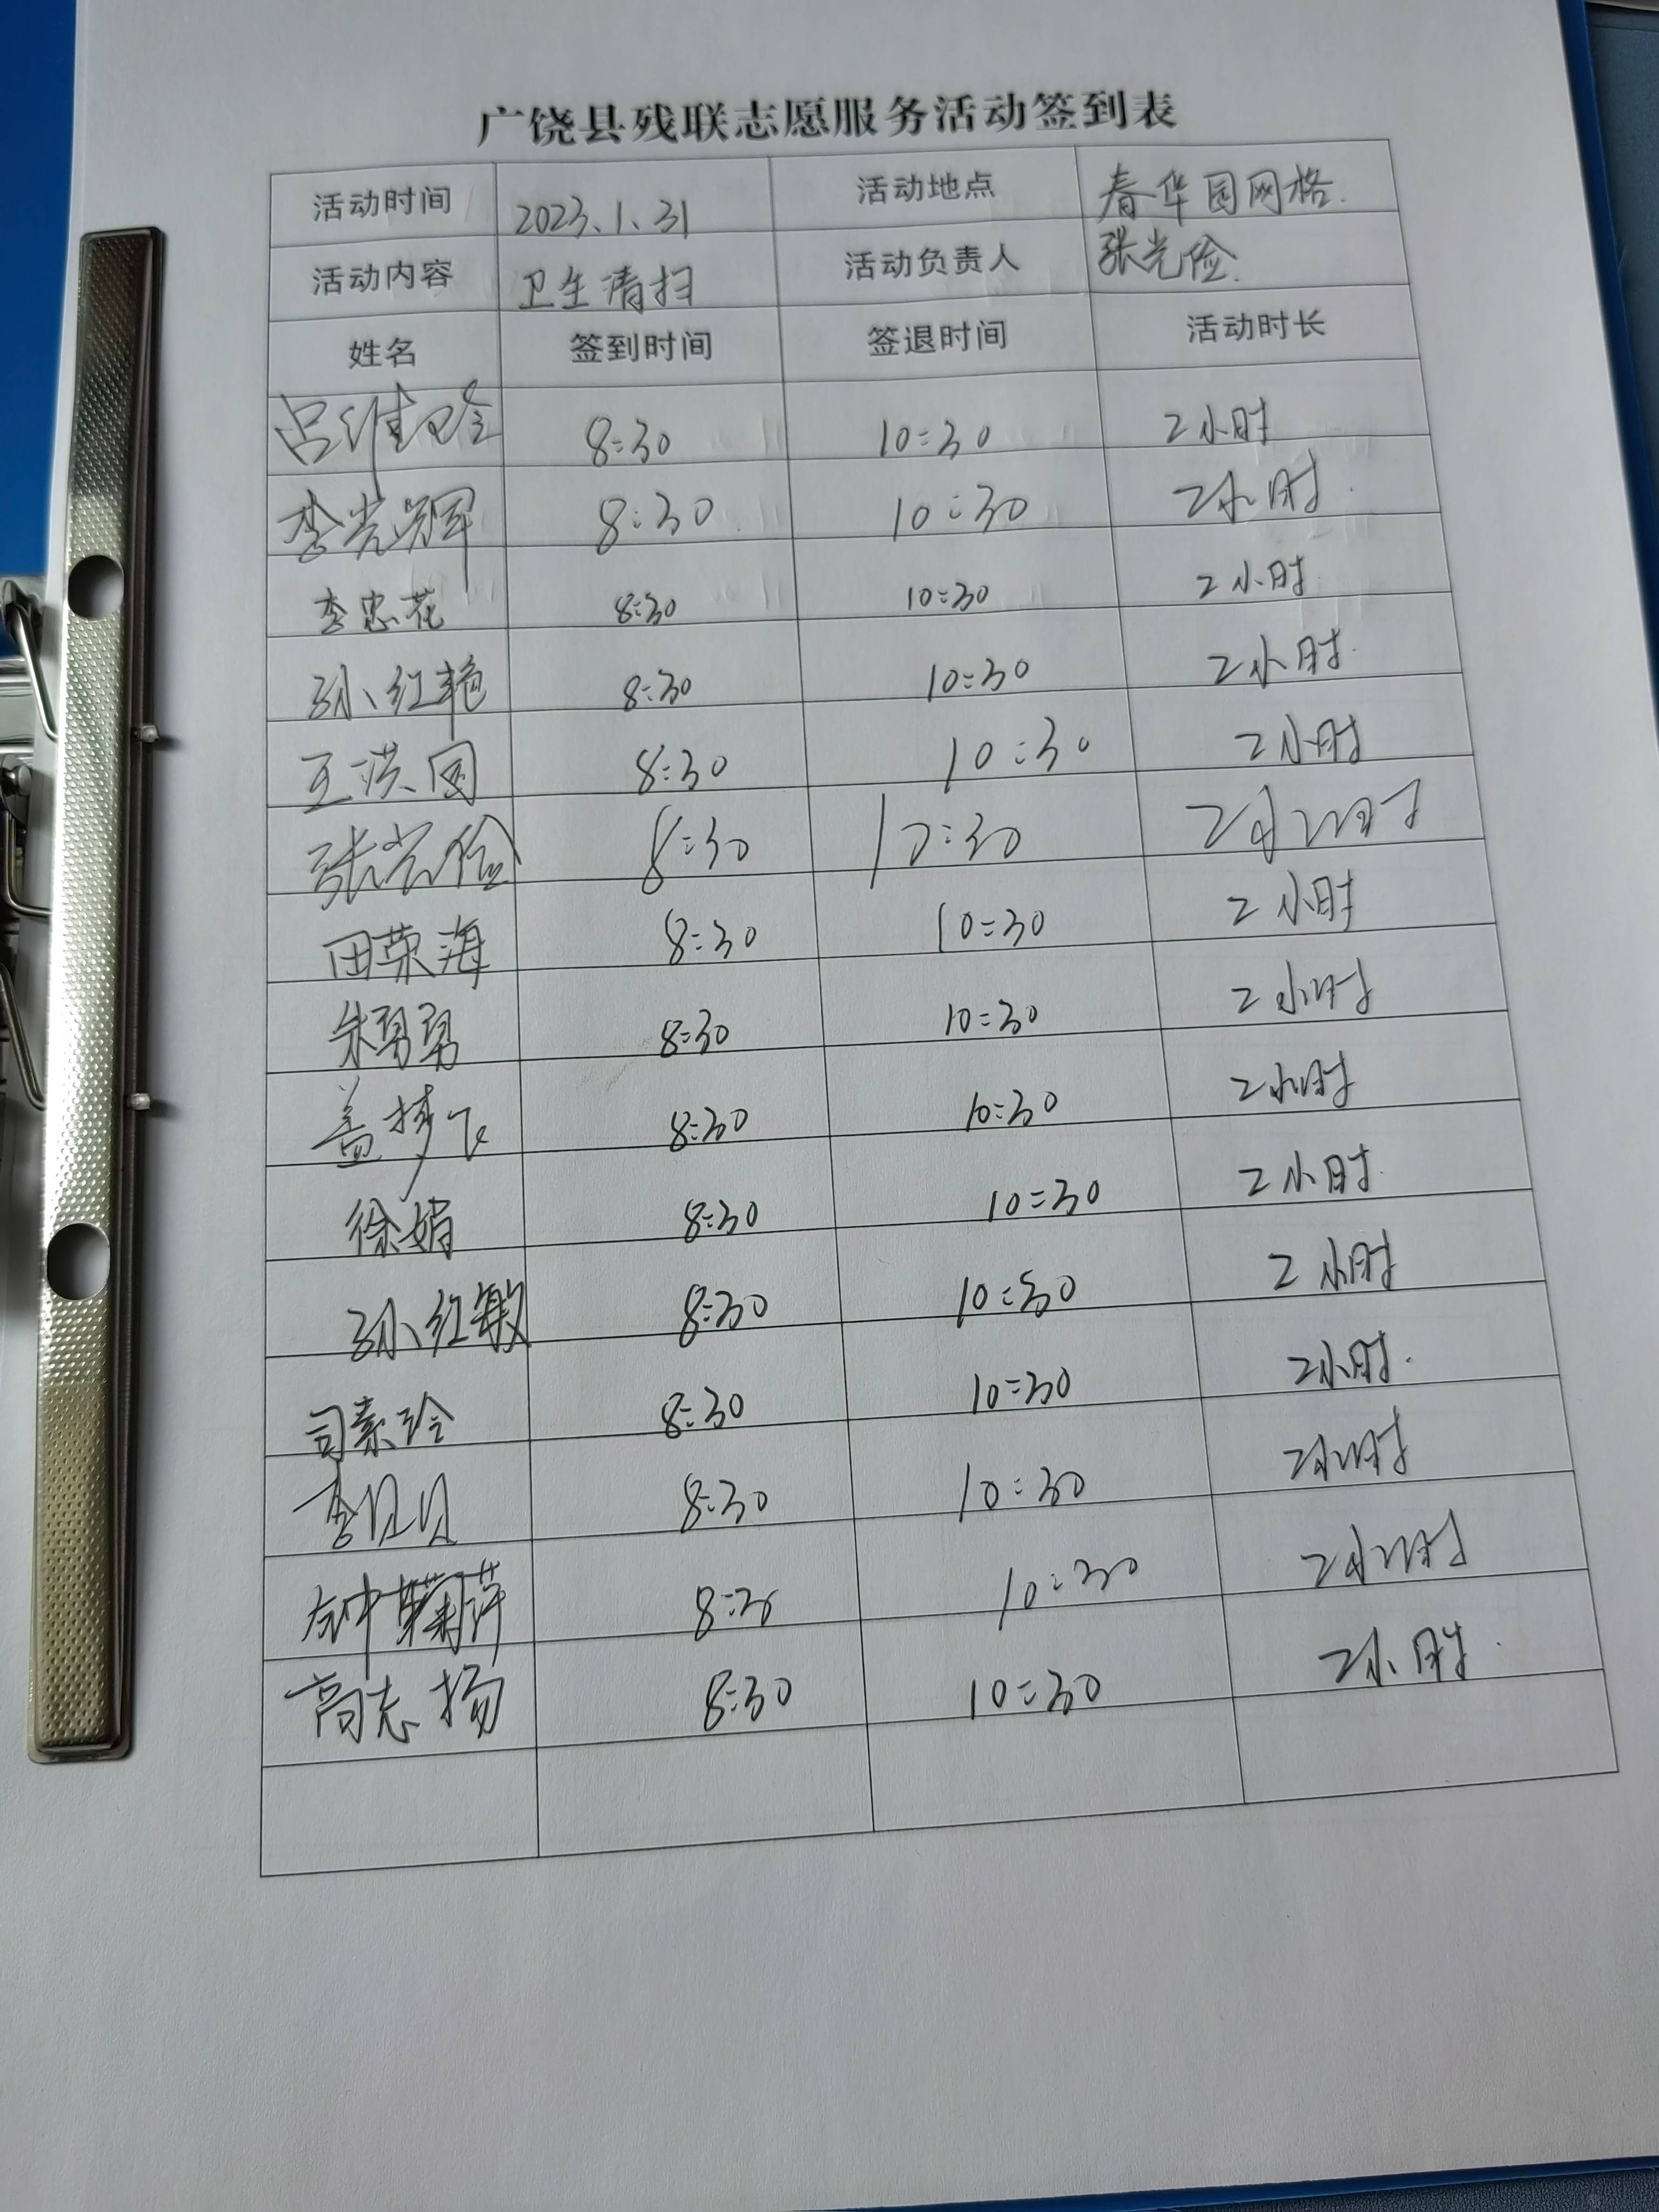 广饶县残联志愿服务活动签到表
活动时间 2023.1.31 活动地点 春华园网格.
活动内容 卫生清扫 活动负责人 张光俭.
姓名 签到时间 签退时间 活动时长
吕维玲 8:30 10:30 2小时
李光辉 8:30 10:30 2小时.
李忠花 8:30 10:30 2小时
孙红艳 8:30 10:30 2小时.
王洪国 8:30 10:30 2小时
张光俭 8:30 10:30 2小时
田荣海 8:30 10:30 2小时
朱勇勇 8:30 10:30 2小时
盖梦飞 8:30 10:30 2小时
徐娟 8:30 10:30 2小时.
孙红敏 8:30 10:30 2小时
司素玲 8:30 10:30 2小时.
李贝贝 8:30 10:30 2小时
钟菊萍 8:30 10:30 2小时
高志扬 8:30 10:30 2小时.